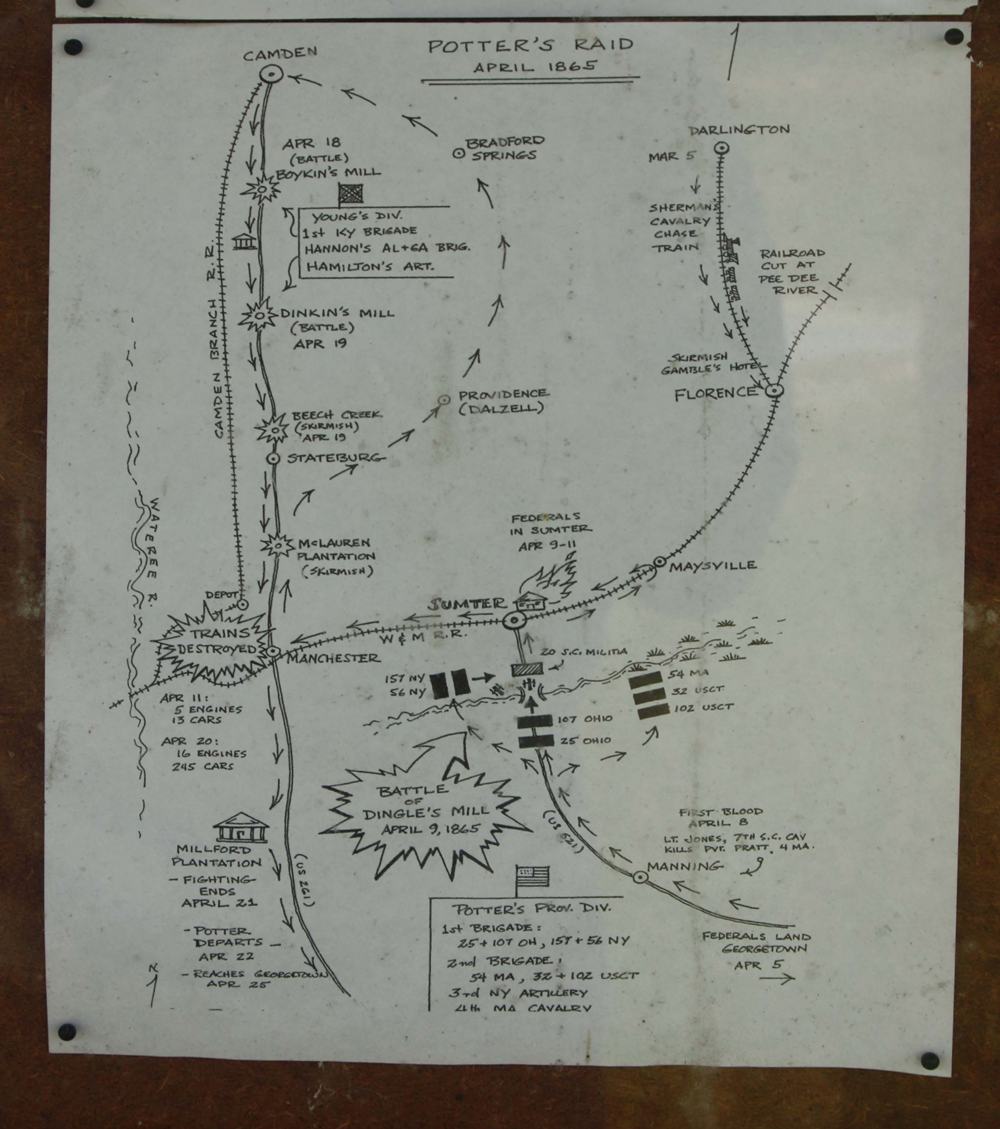 POTTER'S RAID
APRIL 1865
CAMDEN
BRADFORD
SPRINGS
DARLINGTON
MAR 5
SHERMAN'S
CAVALRY
CHASE
TRAIN
RAILROAD
CUT AT
PEE DEE
RIVER
APR 18
(BATTLE)
BOYKIN'S MILL
YOUNG'S DIV.
1st KY BRIGADE
HANNON'S AL+GA BRIG.
HAMILTON'S ART.
CAMDEN BRANCH R.R.
DINKIN'S MILL
(BATTLE)
APR 19
SKIRMISH
GAMBLE'S HOTEL
FLORENCE
PROVIDENCE
(DALZELL)
BEECH CREEK
(SKIRMISH)
APR 19
STATEBURG
WATEREE R.
McLAUREN
PLANTATION
(SKIRMISH)
FEDERALS
IN SUMTER
APR 9-11
MAYSVILLE
DEPOT
SUMTER
TRAINS
DESTROYED
W & M R.R.
MANCHESTER
20 S.C. MILITIA
157 NY
56 NY
54 MA
32 USCT
102 USCT
107 OHIO
25 OHIO
APR 11:
5 ENGINES
13 CARS
APR 20:
16 ENGINES
245 CARS
BATTLE
OF
DINGLE'S MILL
APRIL 9, 1865
(US 521)
FIRST BLOOD
APRIL 8
LT. JONES, 7TH S.C. CAV
KILLS PVT. PRATT, 4 MA.
MANNING
MILLFORD
PLANTATION
- FIGHTING
ENDS
APRIL 21
- POTTER
DEPARTS
APR 22
- REACHES GEORGETOWN
APR 25
(US 261)
N
POTTER'S PROV. DIV.
1st BRIGADE:
25 + 107 OH, 157 + 56 NY
2nd BRIGADE:
54 MA, 32 + 102 USCT
3rd NY ARTILLERY
4th MA CAVALRY
FEDERALS LAND
GEORGETOWN
APR 5